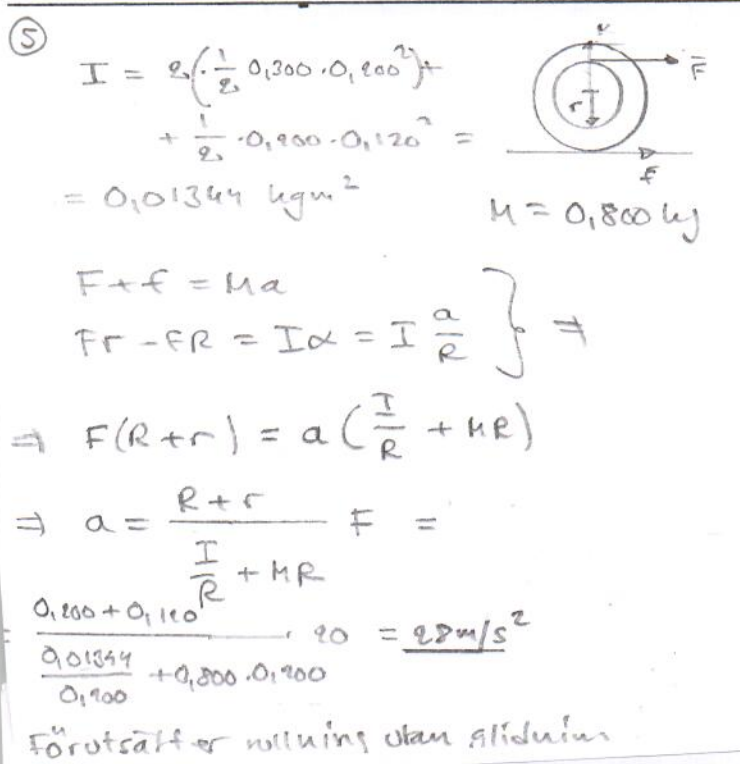 5
I = 2(·1/2 0,300·0,200²)+
+ 1/2 ·0,200·0,120² =
= 0,01344 kgm²
F
r
f
M = 0,800 kg
F+f = Ma
Fr - fR = Iα = I a/R } ⇒
⇒ F(R+r) = a(I/R + MR)
⇒ a = (R+r)/(I/R + MR) F =
= (0,200+0,120)/(0,01344/0,200 + 0,800·0,200) · 20 = 28 m/s²
Förutsätter rullning utan glidning